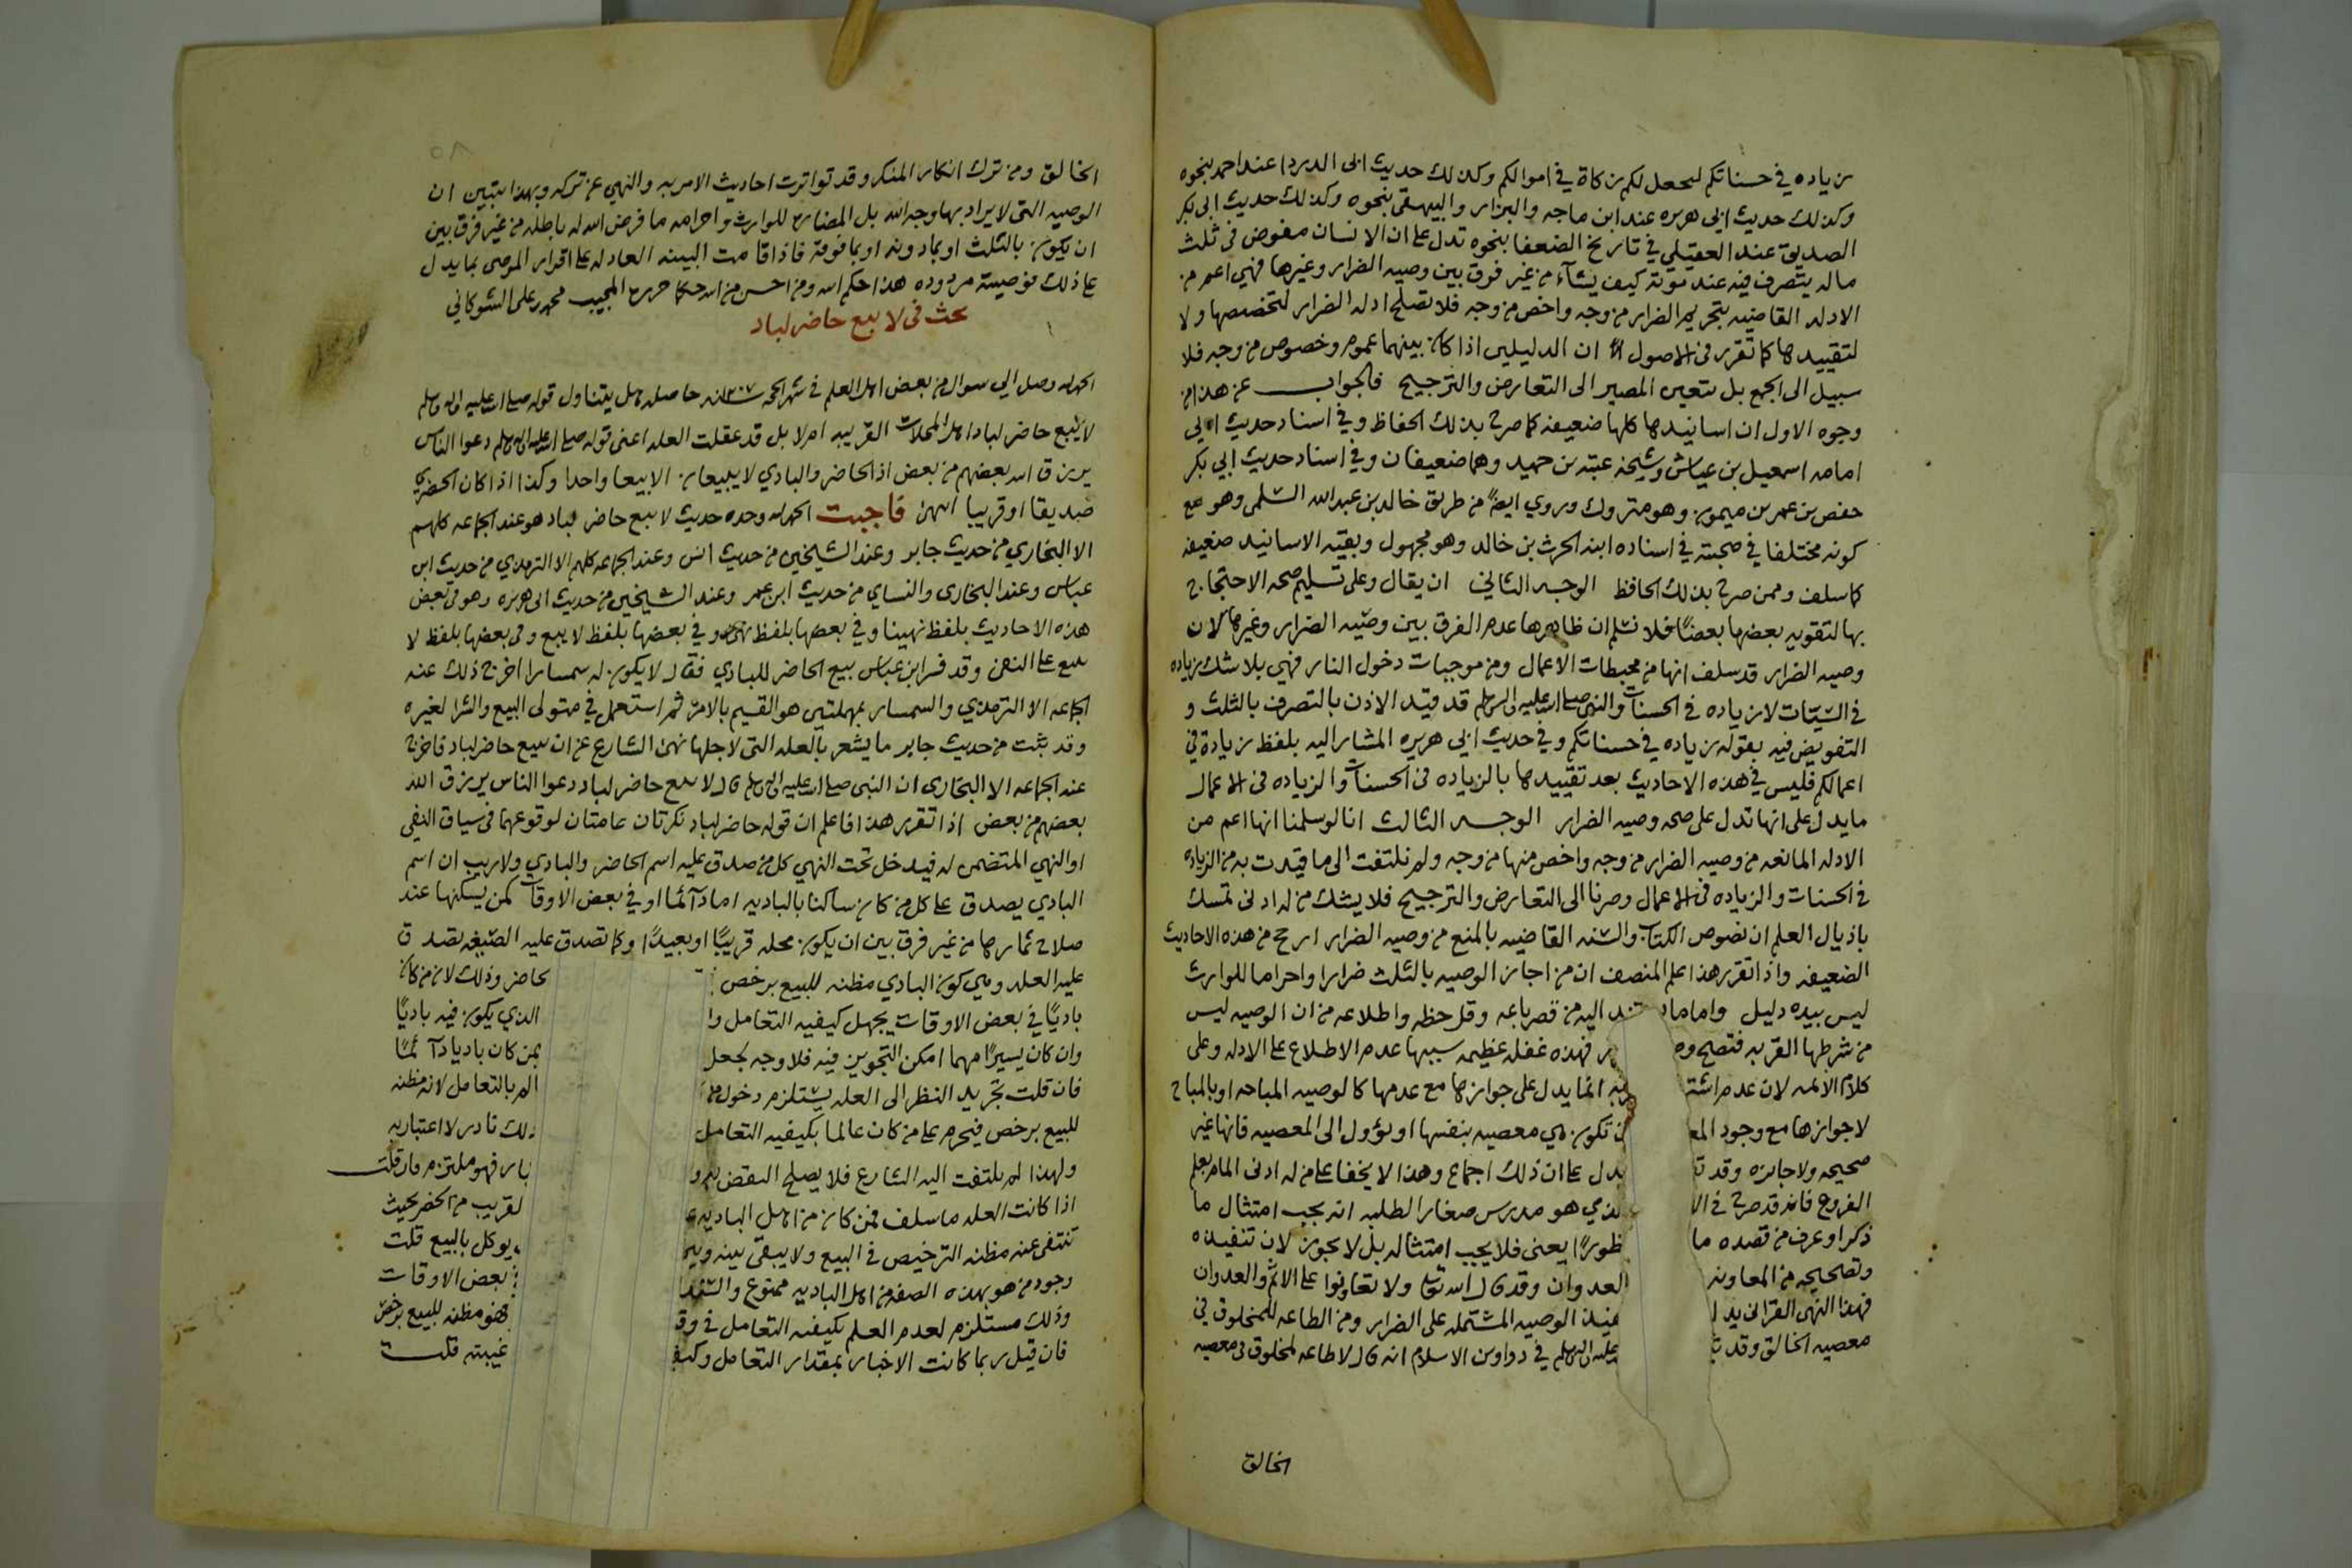 زياده في حسناتكم ليجعل لكم زكاة في اموالكم وكذلك حديث ابى الدردا عند احمد بنحوه
وكذلك حديث ابي هريره عند ابن ماجه والبزار والبيهقى بنحوه وكذلك حديث ابى بكر
الصديق عند العقيلي في تاريخ الضعفا بنحوه تدل على ان الانسان مفوض فى ثلث
ماله يتصرف فيه عند موته كيف يشآء من غير فرق بين وصيه الضرار وغيرها فهي اعم من
الادله القاضيه بتحريم الضرار من وجه واخص من وجه فلا تصلح ادله الضرار لتخصيصها ولا
لتقييدها كما تقرر فى الاصول ان الدليلين اذا كان بينهما عموم وخصوص من وجه فلا
سبيل الى الجمع بل يتعين المصير الى التعارض والترجيح فالجواب عن هذا من
وجوه الاول ان اسانيدها كلها ضعيفه كما صرح بذلك الحفاظ وفي اسناد حديث ابي
امامه اسمعيل بن عياش وشيخه عتبه بن حميد وهما ضعيفان وفي اسناد حديث ابي بكر
حفص بن عمر بن ميمون وهو متروك وروي ايضًا من طريق خالد بن عبد الله السلمى وهو مع
كونه مختلفا في صحبته في اسناده ابنه الحرث بن خالد وهو مجهول وبقيه الاسانيد ضعيفه
كما سلف وممن صرح بذلك الحافظ الوجه الثاني ان يقال وعلى تسليم صحه الاحتجاج
بها لتقويه بعضها بعضًا فلا نسلم ان ظاهرها عدم الفرق بين وصيه الضرار وغيرها لان
وصيه الضرار قد سلف انها من محبطات الاعمال ومن موجبات دخول النار فهي بلا شك زياده
في السيّات لا زياده في الحسنات والنبي صلى الله عليه واله وسلم قد قيد الاذن بالتصرف بالثلث و
التفويض فيه بقوله زياده في حسناتكم وفي حديث ابي هريره المشار اليه بلفظ زيادة في
اعمالكم فليس في هذه الاحاديث بعد تقييدها بالزياده فى الحسنات والزياده فى الاعمال
ما يدل على انها تدل على صحه وصيه الضرار الوجه الثالث انا لو سلمنا انها اعم من
الادله المانعه من وصيه الضرار من وجه واخص منها من وجه ولم نلتفت الى ما قيدت به من الزياده
في الحسنات والزياده فى الاعمال وصرنا الى التعارض والترجيح فلا يشك من له ادنى تمسك
باذيال العلم ان نصوص الكتاب والسنه القاضيه بالمنع من وصيه الضرار ارجح من هذه الاحاديث
الضعيفه واذا تقرر هذا علم المنصف ان من اجاز الوصيه بالثلث ضرارا واحراما للوارث
ليس بيده دليل واما ما ند اليه من قصر باعه وقل حظه واطلاعه من ان الوصيه ليس
من شرطها القربه فتصح فهذه غفله عظيمه سببها عدم الاطلاع على الادله وعلى
كلام الائمه لان عدم اشتـ ـربه انما يدل على جوازها مع عدمها كالوصيه المباحه او بالمباح
لا جوازها مع وجود المعـ تكون هي معصيه بنفسها او تؤول الى المعصيه فانها غير
صحيحه ولا جائزه وقد يدل على ان ذلك اجماع وهذا لا يخفا على من له ادنى المام بعلم
الفروع فانه قد صرح في الا لذي هو مدرس صغار الطلبه انه يجب امتثال ما
ذكر او عرف من قصده ما ـظورًا يعنى فلا يجب امتثاله بل لا يجوز لان تنفيذه
وتصحيحه من المعاونه العدوان وقد قال الله تعالى ولا تعاونوا على الاثم والعدوان
فهذا النهى القرانى يدل الوصيه المشتمله على الضرار ومن الطاعه للمخلوق في
معصيه الخالق وقد عليه واله وسلم في دواوين الاسلام انه قال لا طاعه لمخلوق فى معصيه
الخالق
الخالق ومن ترك انكار المنكر وقد تواترت احاديث الامر به والنهي عن تركه وبهذا يتبين ان
الوصيه التى لا يراد بها وجه الله بل المضاره للوارث واحرامه ما فرض الله له باطله من غير فرق بين
ان يكون بالثلث او بما دونه او بما فوقه فاذا قامت البينه العادله على اقرار الموصى بما يدل
على ذلك فوصيته مردوده هذا حكم الله ومن احسن من الله حكما حرره المجيب محمد بن على الشوكاني
بحث فى لا يبيع حاضر لباد
الحمد لله وصل الي سوال من بعض اهل العلم في شهر الحجه حاصله هل يتناول قوله صلى الله عليه واله وسلم
لا يبيع حاضر لباد اهل المحلات القريبه ام لا بل قد عقلت العله اعنى قوله صلى الله عليه واله وسلم دعوا الناس
يرزق الله بعضهم من بعض اذ الحاضر والبادي لا يبيعان الا بيعا واحدا وكذا اذا كان الحضري
صديقا او قريبا انتهى فاجبت الحمد لله وحده حديث لا يبع حاضر لباد هو عند الجماعه كلهم
الا البخاري من حديث جابر وعند الشيخين من حديث انس وعند الجماعه كلهم الا الترمذي من حديث ابن
عباس وعند البخارى والنساي من حديث ابن عمر وعند الشيخين من حديث ابى هريره وهو فى بعض
هذه الاحاديث بلفظ نهينا وفي بعضها بلفظ نهى وفي بعضها بلفظ لا يبيع وفى بعضها بلفظ لا
يبع على النهى وقد فسر ابن عباس بيع الحاضر للبادي فقال لا يكون له سمسارا اخرج ذلك عنه
الجماعه الا الترمذي والسمسار بمهملتين هو القيم بالامر ثم استعمل في متولى البيع والشرا لغيره
وقد ثبت من حديث جابر ما يشعر بالعله التى لاجلها نهى الشارع عن ان يبيع حاضر لباد فاخرج
عند الجماعه الا البخارى ان النبى صلى الله عليه واله وسلم قال لا يبع حاضر لباد دعوا الناس يرزق الله
بعضهم من بعض اذا تقرر هذا فاعلم ان قوله حاضر لباد نكرتان عامتان لوقوعهما فى سياق النفى
او النهي المتضمن له فيدخل تحت النهي كل من صدق عليه اسم الحاضر والبادي ولا ريب ان اسم
البادي يصدق على كل من كان ساكنا بالباديه اما دآئما او في بعض الاوقات كمن يسكنها عند
صلاح ثمارها من غير فرق بين ان يكون محله قريبًا او بعيدًا وكما تصدق عليه الصيغه تصدق
عليه العله وهي كون البادي مظنه للبيع برخص لحاضر وذلك لان من كان
باديًا في بعض الاوقات يجهل كيفيه التعامل الذي يكون فيه باديًا
وان كان يسيرًا مهما امكن التجويز فيه فلا وجه لجعل بمن كان باديا دآئمًا
فان قلت تجريد النظر الى العله يستلزم دخول بالتعامل لانه مظنه
للبيع برخص فيحرم على من كان عالما بكيفيه التعامل ذلك نادر لا اعتبار به
ولهذا لم يلتفت اليه الشارع فلا يصلح النقض به فهو ملتزم فان قلت
اذا كانت العله ما سلف فمن كان من اهل الباديه لقريب من الحضر بحيث
تنتفى عنه مظنه الترخيص في البيع ولا يبقى بينه وبين يوكل بالبيع قلت
وجود من هو بهذه الصفه من اهل الباديه ممنوع والسند بعض الاوقات
وذلك مستلزم لعدم العلم بكيفيه التعامل في وقـ فهو مظنه للبيع برخص
فان قيل ربما كانت الاخبار بمقدار التعامل وكيفـ غيبته قلت